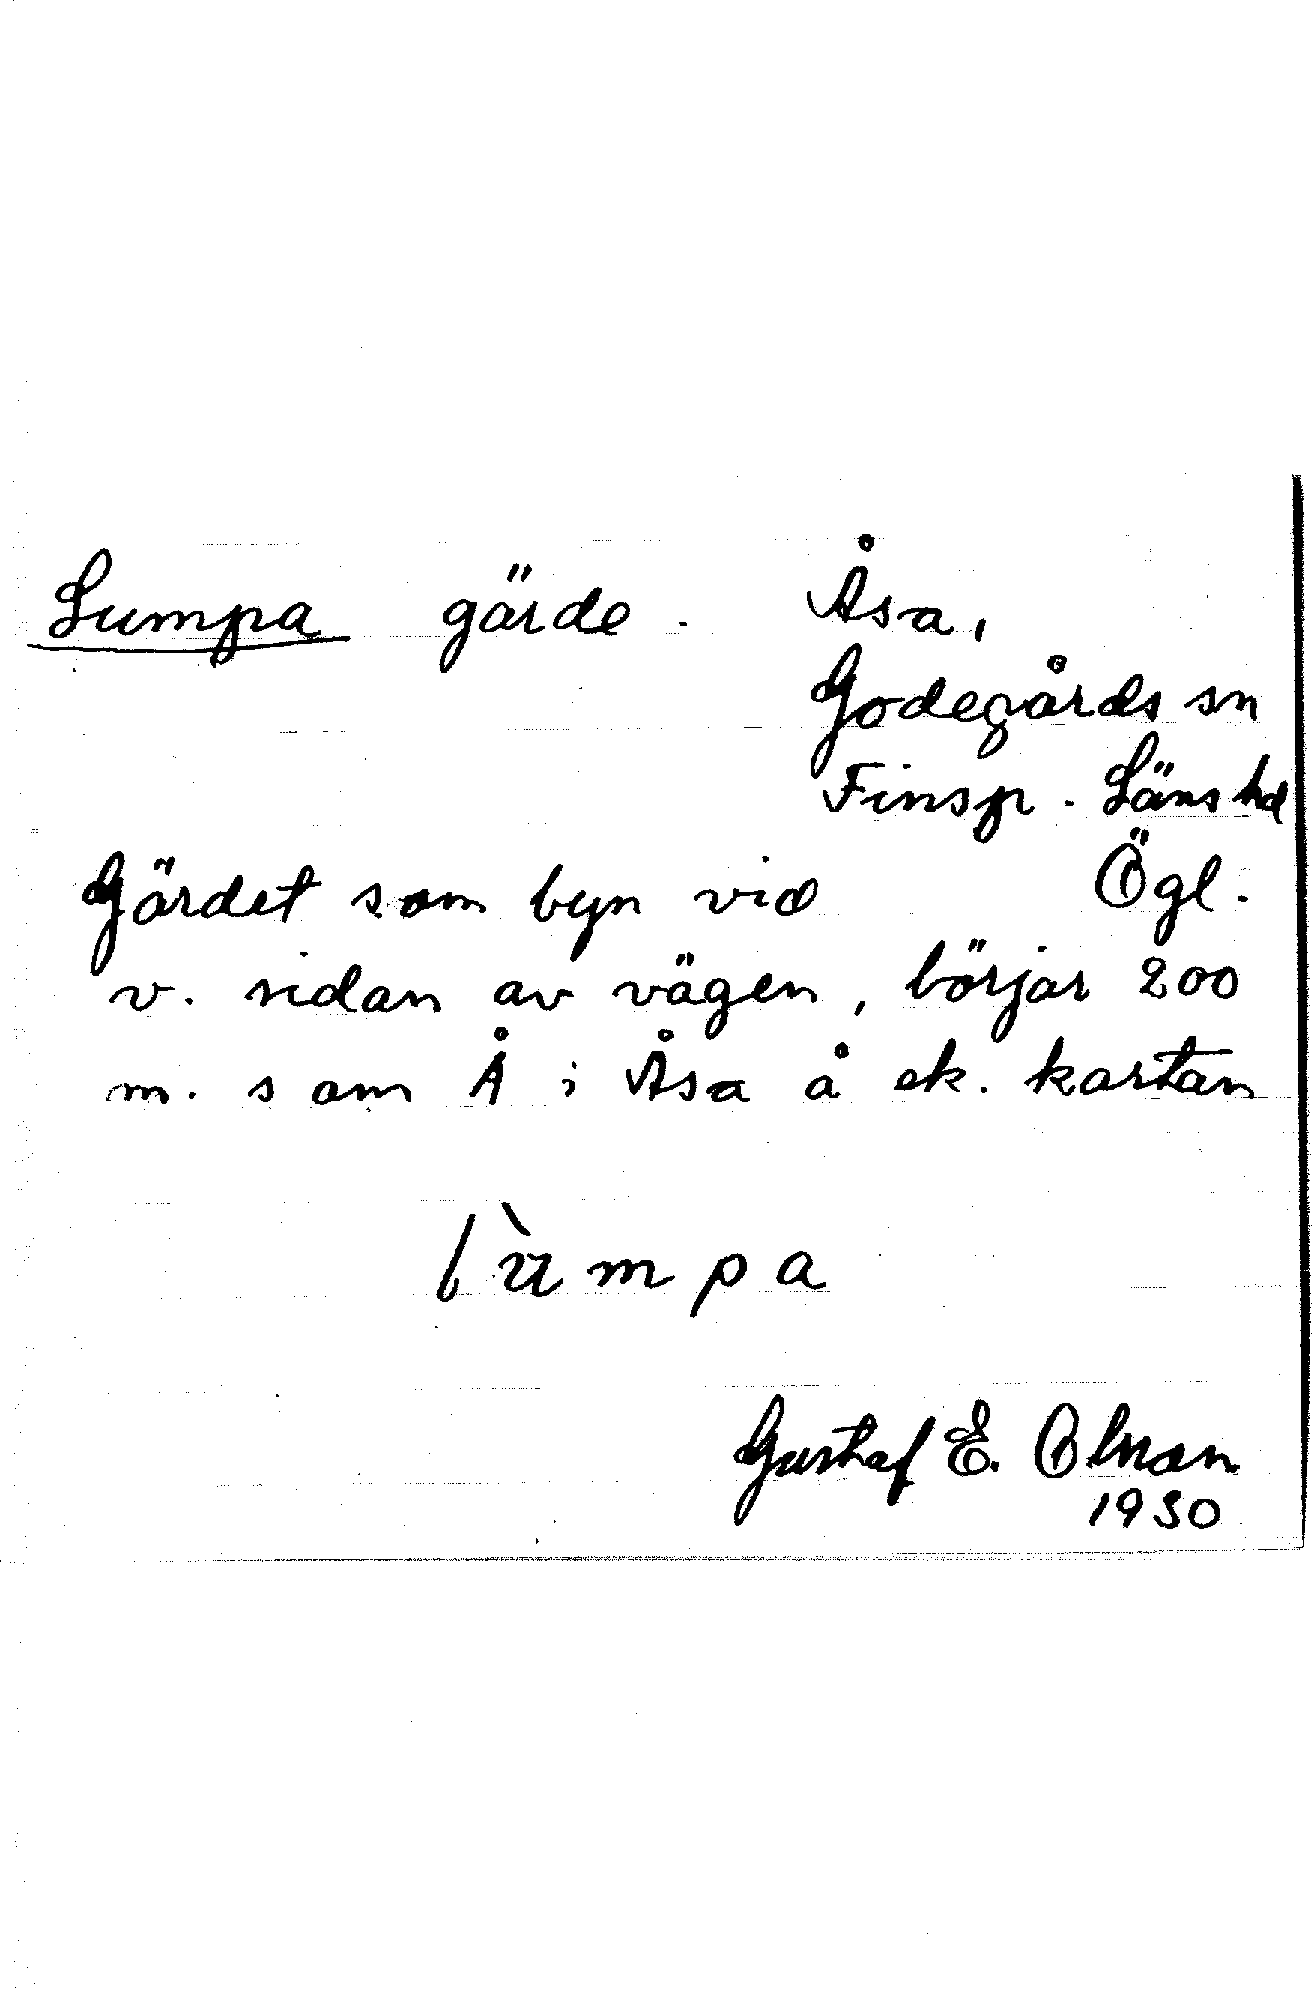 Lumpa gärde. Åsa,
Godegårds sn
Finsp. Läns hd
Gärdet som byn vid Ögl.
v. sidan av vägen, börjar 200
m. s om Å i Åsa å ek. kartan
lùmpa
Gustaf E. Olsson
1930